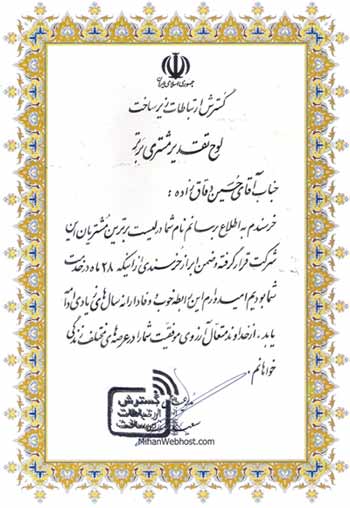 جمهوری اسلامی ایران
گسترش ارتباطات زیر ساخت
لوح تقدیر مشتری برتر
جناب آقای حسین وفاق زاده :
خرسندم به اطلاع برسانم نام شما در لیست برترین مشتریان این
شرکت قرار گرفته و ضمن ابراز خرسندی از اینکه ۲۸ ماه در خدمت
شما بودیم امیدوارم این رابطه خوب و وفادارانه سال های زیادی ادامه
یابد . از خداوند متعال آرزوی موفقیت شما را در عرصه های مختلف زندگی
خواهانم .
گسترش
ارتباطات
زیرساخت
MihanWebhost.com